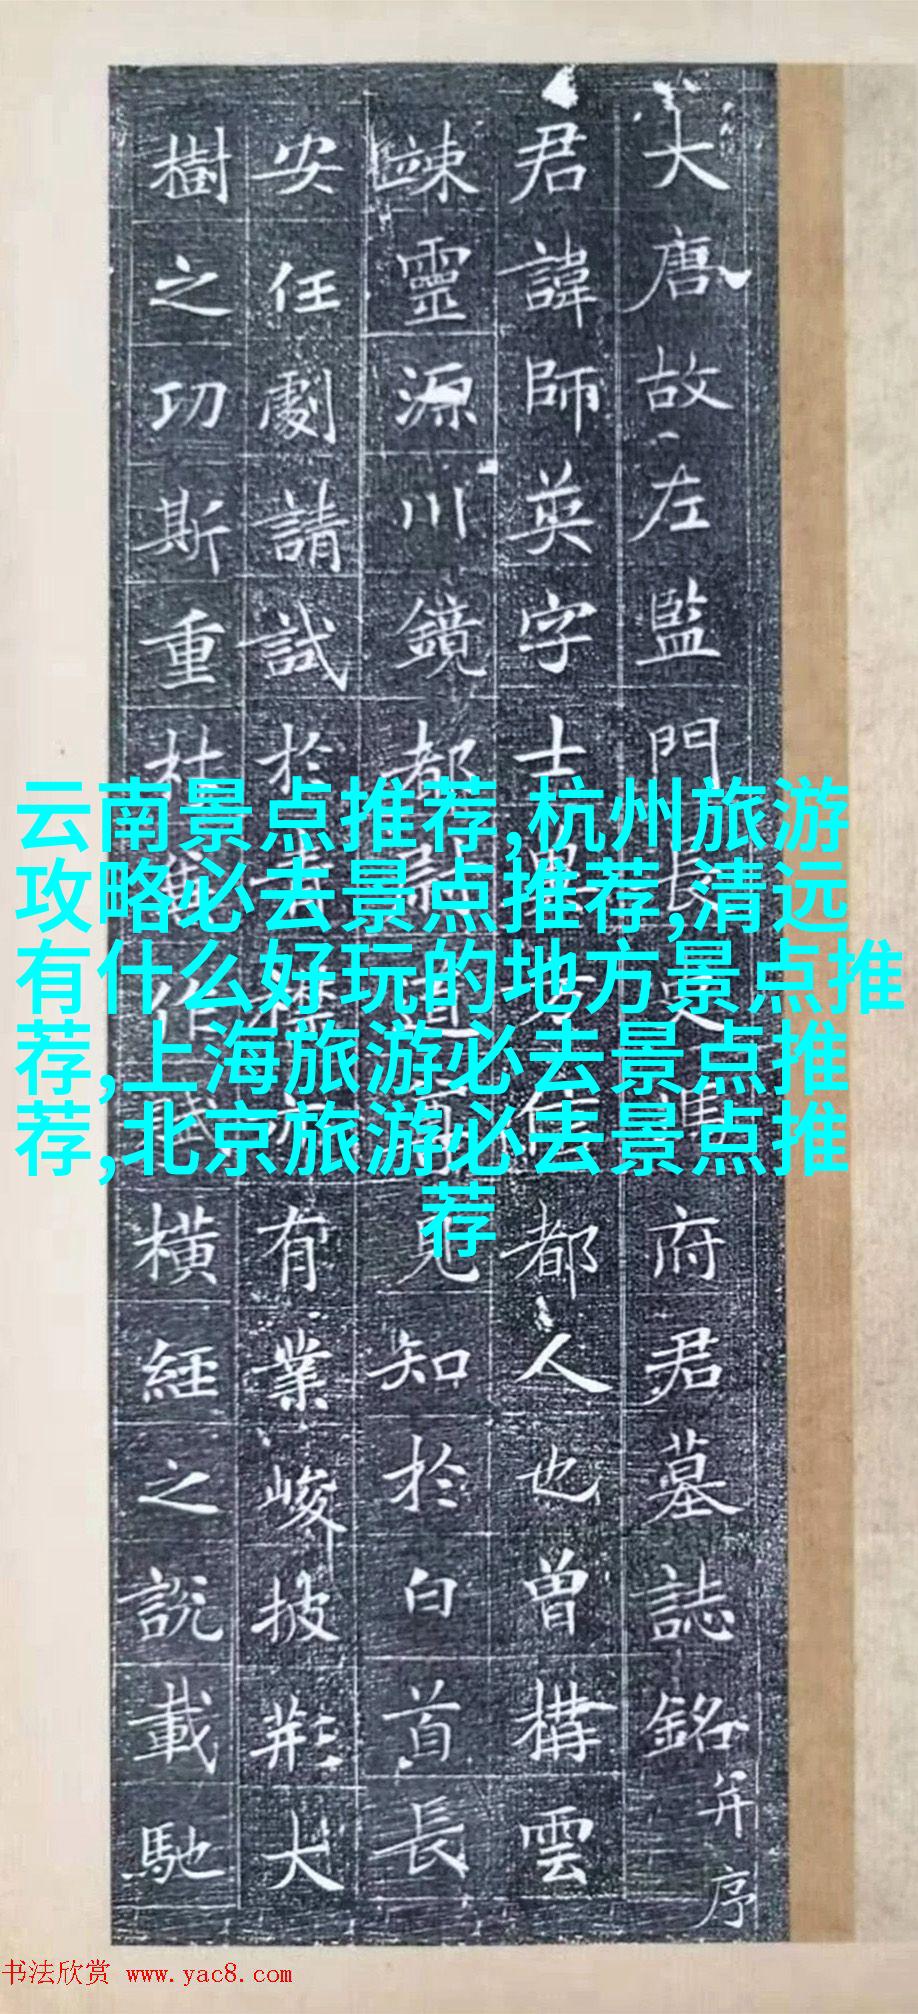 云南景点推荐,杭州旅游
攻略必去景点推荐,清远
有什么好玩的地方景点推
荐,上海旅游必去景点推
荐,北京旅游必去景点推
荐
大唐故左監門長史馮府君墓誌銘并序
君諱師英字士都人也曾構雲
竦靈源川鏡都尉道見知於白首長
安任劇請試於有業峻披荊大
樹之功斯重杜作賦橫經之說載馳
书法欣赏 www.yac8.com